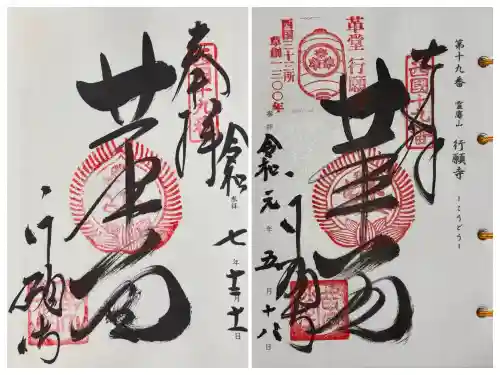 奉拝
西國十九番
革堂
令和七年十二月十一日
行願寺
第十九番 霊麀山 行願寺
―こうどう―
奉拝
西國十九番
革堂 行願寺
西国三十三所
草創一三〇〇年
革堂
奉拝
令和元年五月十八日
行願寺